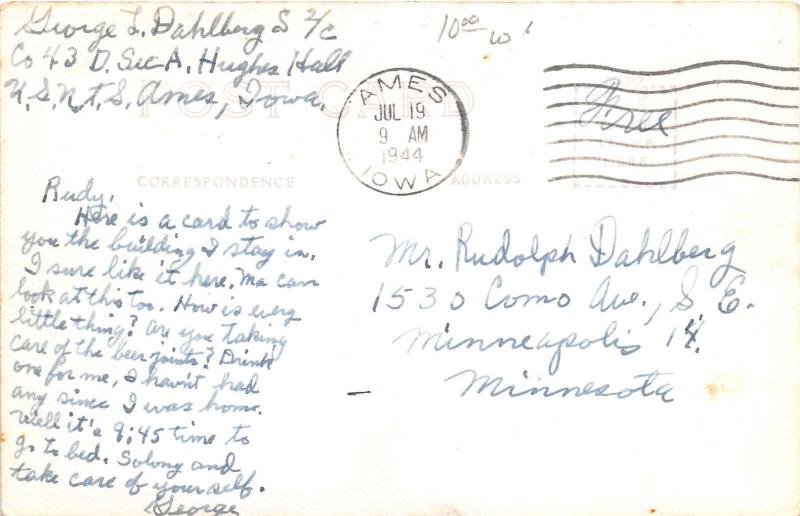 George L. Dahlberg S 2/c
Co 43 D. Sec A. Hughes Hall
U.S.N.T.S. Ames, Iowa.
1000 w
POST CARD
AMES
JUL 19
9 AM
1944
IOWA
Free
CORRESPONDENCE
ADDRESS
Rudy,
Here is a card to show
you the building I stay in.
I sure like it here. Ma can
look at this too. How is every
little thing? Are you taking
care of the beer joints? Drink
one for me, I havn't had
any since I was home.
Well it's 9:45 time to
go to bed. Solong and
take care of yourself.
George
Mr. Rudolph Dahlberg
1530 Como Ave., S E.
Minneapolis 14.
Minnesota